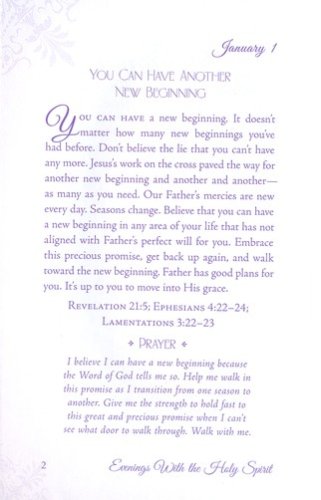 January 1
You Can Have Another
New Beginning
You can have a new beginning. It doesn't
matter how many new beginnings you've
had before. Don't believe the lie that you can't have
any more. Jesus's work on the cross paved the way for
another new beginning and another and another—
as many as you need. Our Father's mercies are new
every day. Seasons change. Believe that you can have
a new beginning in any area of your life that has not
aligned with Father's perfect will for you. Embrace
this precious promise, get back up again, and walk
toward the new beginning. Father has good plans for
you. It's up to you to move into His grace.
Revelation 21:5; Ephesians 4:22–24;
Lamentations 3:22–23
Prayer
I believe I can have a new beginning because
the Word of God tells me so. Help me walk in
this promise as I transition from one season to
another. Give me the strength to hold fast to
this great and precious promise when I can't
see what door to walk through. Walk with me.
2
Evenings With the Holy Spirit